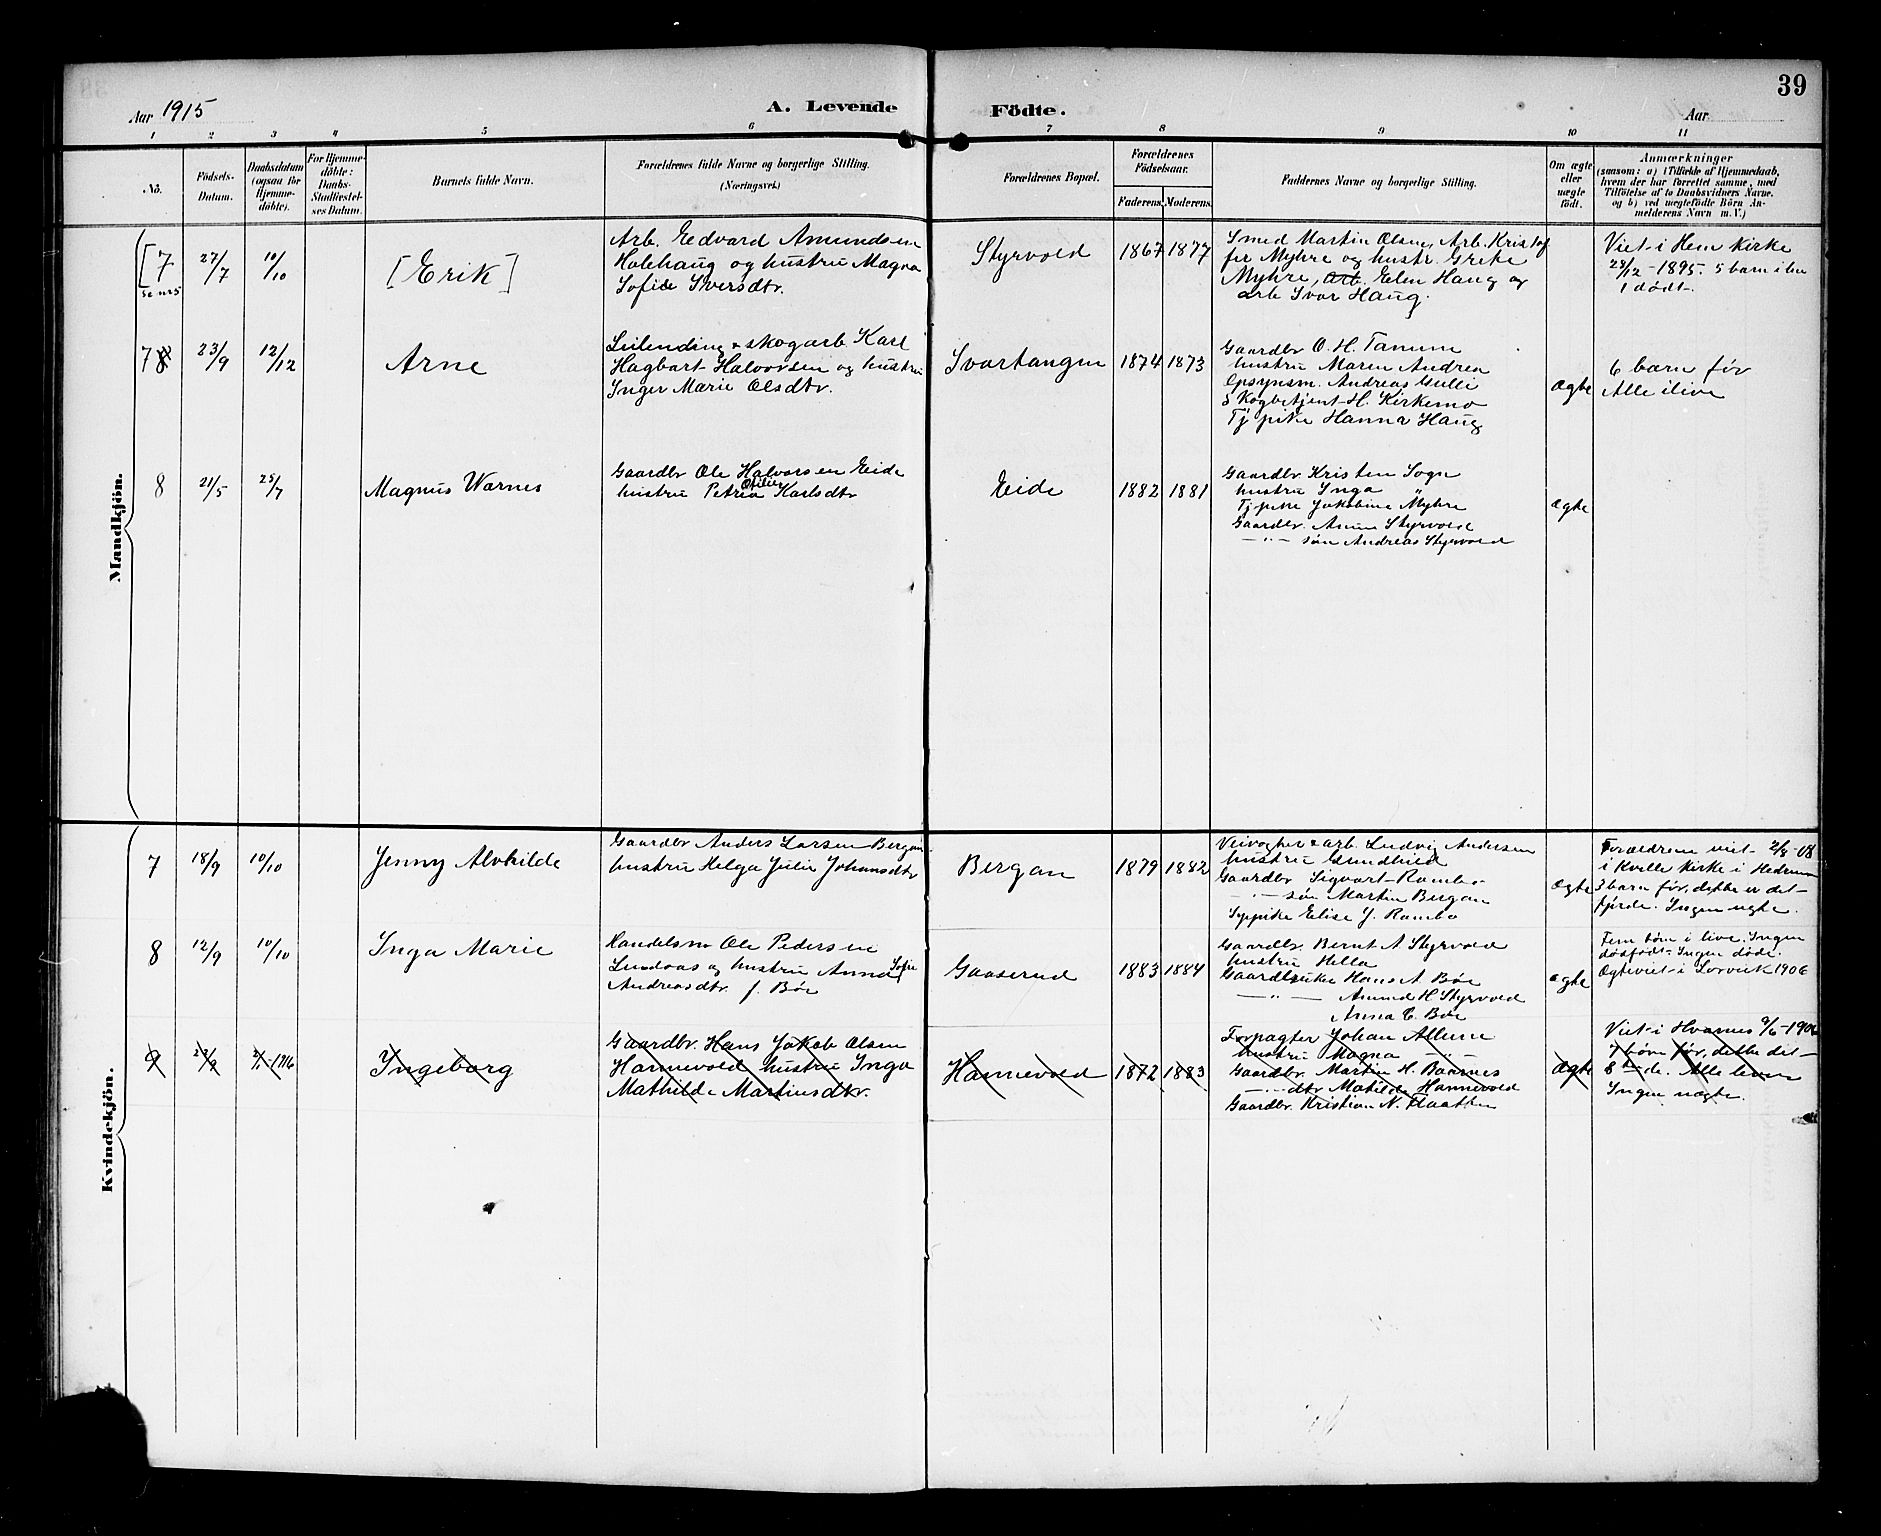 39
Aar 1915
A. Levende Födte.
Aar
1 2 3 4 5 6 7 8 9 10 11
No.
Födsels-
Datum.
Daabsdatum
(ogsaa for
Hjemme-
döbte).
For Hjemme-
döbte:
Daabs-
Stadfæstel-
ses Datum.
Barnets fulde Navn.
Forældrenes fulde Navne og borgerlige Stilling.
(Næringsvei.)
Forældrenes Bopæl.
Forældrenes
Födselsaar.
Faderens. Moderens.
Faddernes Navne og borgerlige Stilling.
Om ægte
eller
uægte
födt.
Anmærkninger
(saasom: a) i Tilfælde af Hjemmedaab,
hvem der har forrettet samme, med
Tilföielse af to Daabsvidners Navne,
og b) ved uægtefödte Börn An-
melderens Navn m. V.)
Mandkjön.
[7
se nr 5
27/7
10/10
[Erik]
Arb. Edvard Amundsen
Holehaug og hustru Magna
Sofie Iversdtr.
Styrvold
1867 1877
Smed Martin Olsen, Arb. Kristof
fer Myhre og hustr. Grete
Myhre, arb. Elen Haug og
arb Ivar Haug.
Viet i Hem kirke
28/12 - 1895. 5 barn i live
1 dødt.
7
23/9
12/12
Arne
Leilending & skogarb Karl
Hagbart Halvorsen og hustru
Inger Marie Olsdtr.
Svartangen
1874 1873
Gaardbr O. H. Tanum
hustru Maren Andrea
Opsynsm. Andreas Gulli
Skogbetjent H. Kirkemo
Tj pike Hanna Haug
Ægte
6 barn før
Alle ilive
8
21/5
25/7
Magnus Warnes
Gaardbr Ole Halvorsen Eide
hustru Petrea Otilie Karlsdtr
Eide
1882 1881
Gaardbr. Kristen Sogn
hustru Inga "
Tj pike Jakobine Myhre
Gaardbr. Anun Styrvold
—"— søn Andreas Styrvold
Ægte
Kvindekjön.
7
18/9
10/10
Jenny Alvhilde
Gaardbr Anders Larsen Bergan
hustru Helga Julie Johansdtr
Bergan
1879 1882
Veivogter & arb. Ludvig Andersen
hustru Gundhild
Gaardbr Sigvart Rambo
—"— søn Martin Bergan
Sypike Elise J. Rambo
Ægte
Forældrene viet 2/8-08
i Kvelle kirke i Hedrum
3 barn før, dette er det
fjerde. Ingen uegte.
8
12/9
10/10
Inga Marie
Handelsm Ole Pedersen
Lundaas og hustru Anna Sofie
Andreasdtr f. Bøe
Gaaserud
1883 1884
Gaardbr. Bernt A Styrvold
hustru Hella
Gaardbruker Hans A Bøe
—"— Anund H Styrvold
Anna C. Bøe
ægte
Fem børn i live. Ingen
dødfødt. Ingen døde.
Ægteviet i Larvik 1906
9
Ingeborg
Gaardbr. Hans Jakob Olsen
Hannevold hustru Inga
Mathilde Martinsdtr.
Hannevold
1872 1883
Forpagter Johan Allum
hustru Magna —"—
Gaardbr. Martin H. Baarnes
—"— dtr Matilde Hannevold
Gaardbr. Kristian N. Flaatten
Ægte
Viet i Hvarnes 9/6-1906
7 børn før, dette det
8 ende. Alle leven
Ingen uægte.